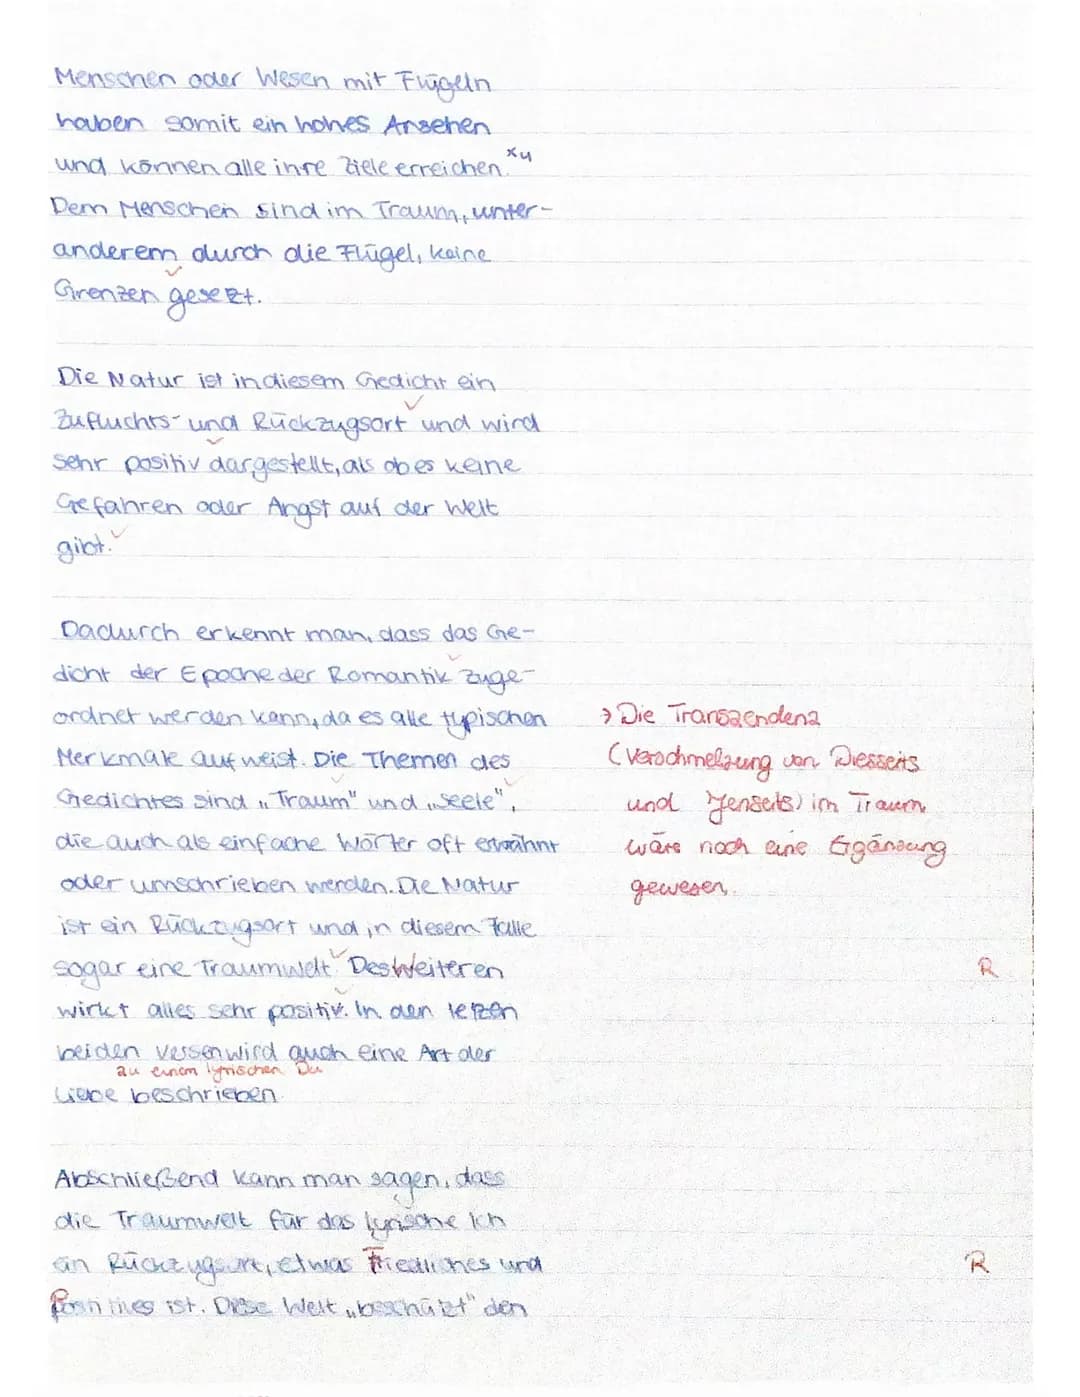 Menschen oder Wesen mit Flügeln
haben somit ein hohes Ansehen
und können alle ihre Ziele erreichen. x4
Dem Menschen sind im Traum, unter-
anderem durch die Flügel, keine
Grenzen gesetzt.
Die Natur ist in diesem Gedicht ein
Zufluchts- und Rückzugsort und wird
sehr positiv dargestellt, als ob es keine
Gefahren oder Angst auf der Welt
gibt.
Dadurch erkennt man, dass das Ge-
dicht der Epoche der Romantik zuge-
ordnet werden kann, da es alle typischen
Merkmale aufweist. Die Themen des
Gedichtes sind „Traum" und „Seele",
die auch als einfache Wörter oft erwähnt
oder umschrieben werden. Die Natur
ist ein Rückzugsort und in diesem Falle
sogar eine Traumwelt. Des Weiteren
wirkt alles sehr positiv. In den letzen
beiden Versen wird auch eine Art der
zu einem lyrischen Du
Liebe beschrieben.
→ Die Transzendenz
(Verschmelzung von Diesseits
und Jenseits) im Traum
wäre noch eine Ergänzung
gewesen.
R
Abschließend kann man sagen, dass
die Traumwelt für das lyrische Ich
ein Rückzugsort, etwas Friedliches und
Positives ist. Diese Welt „beschützt" den
R